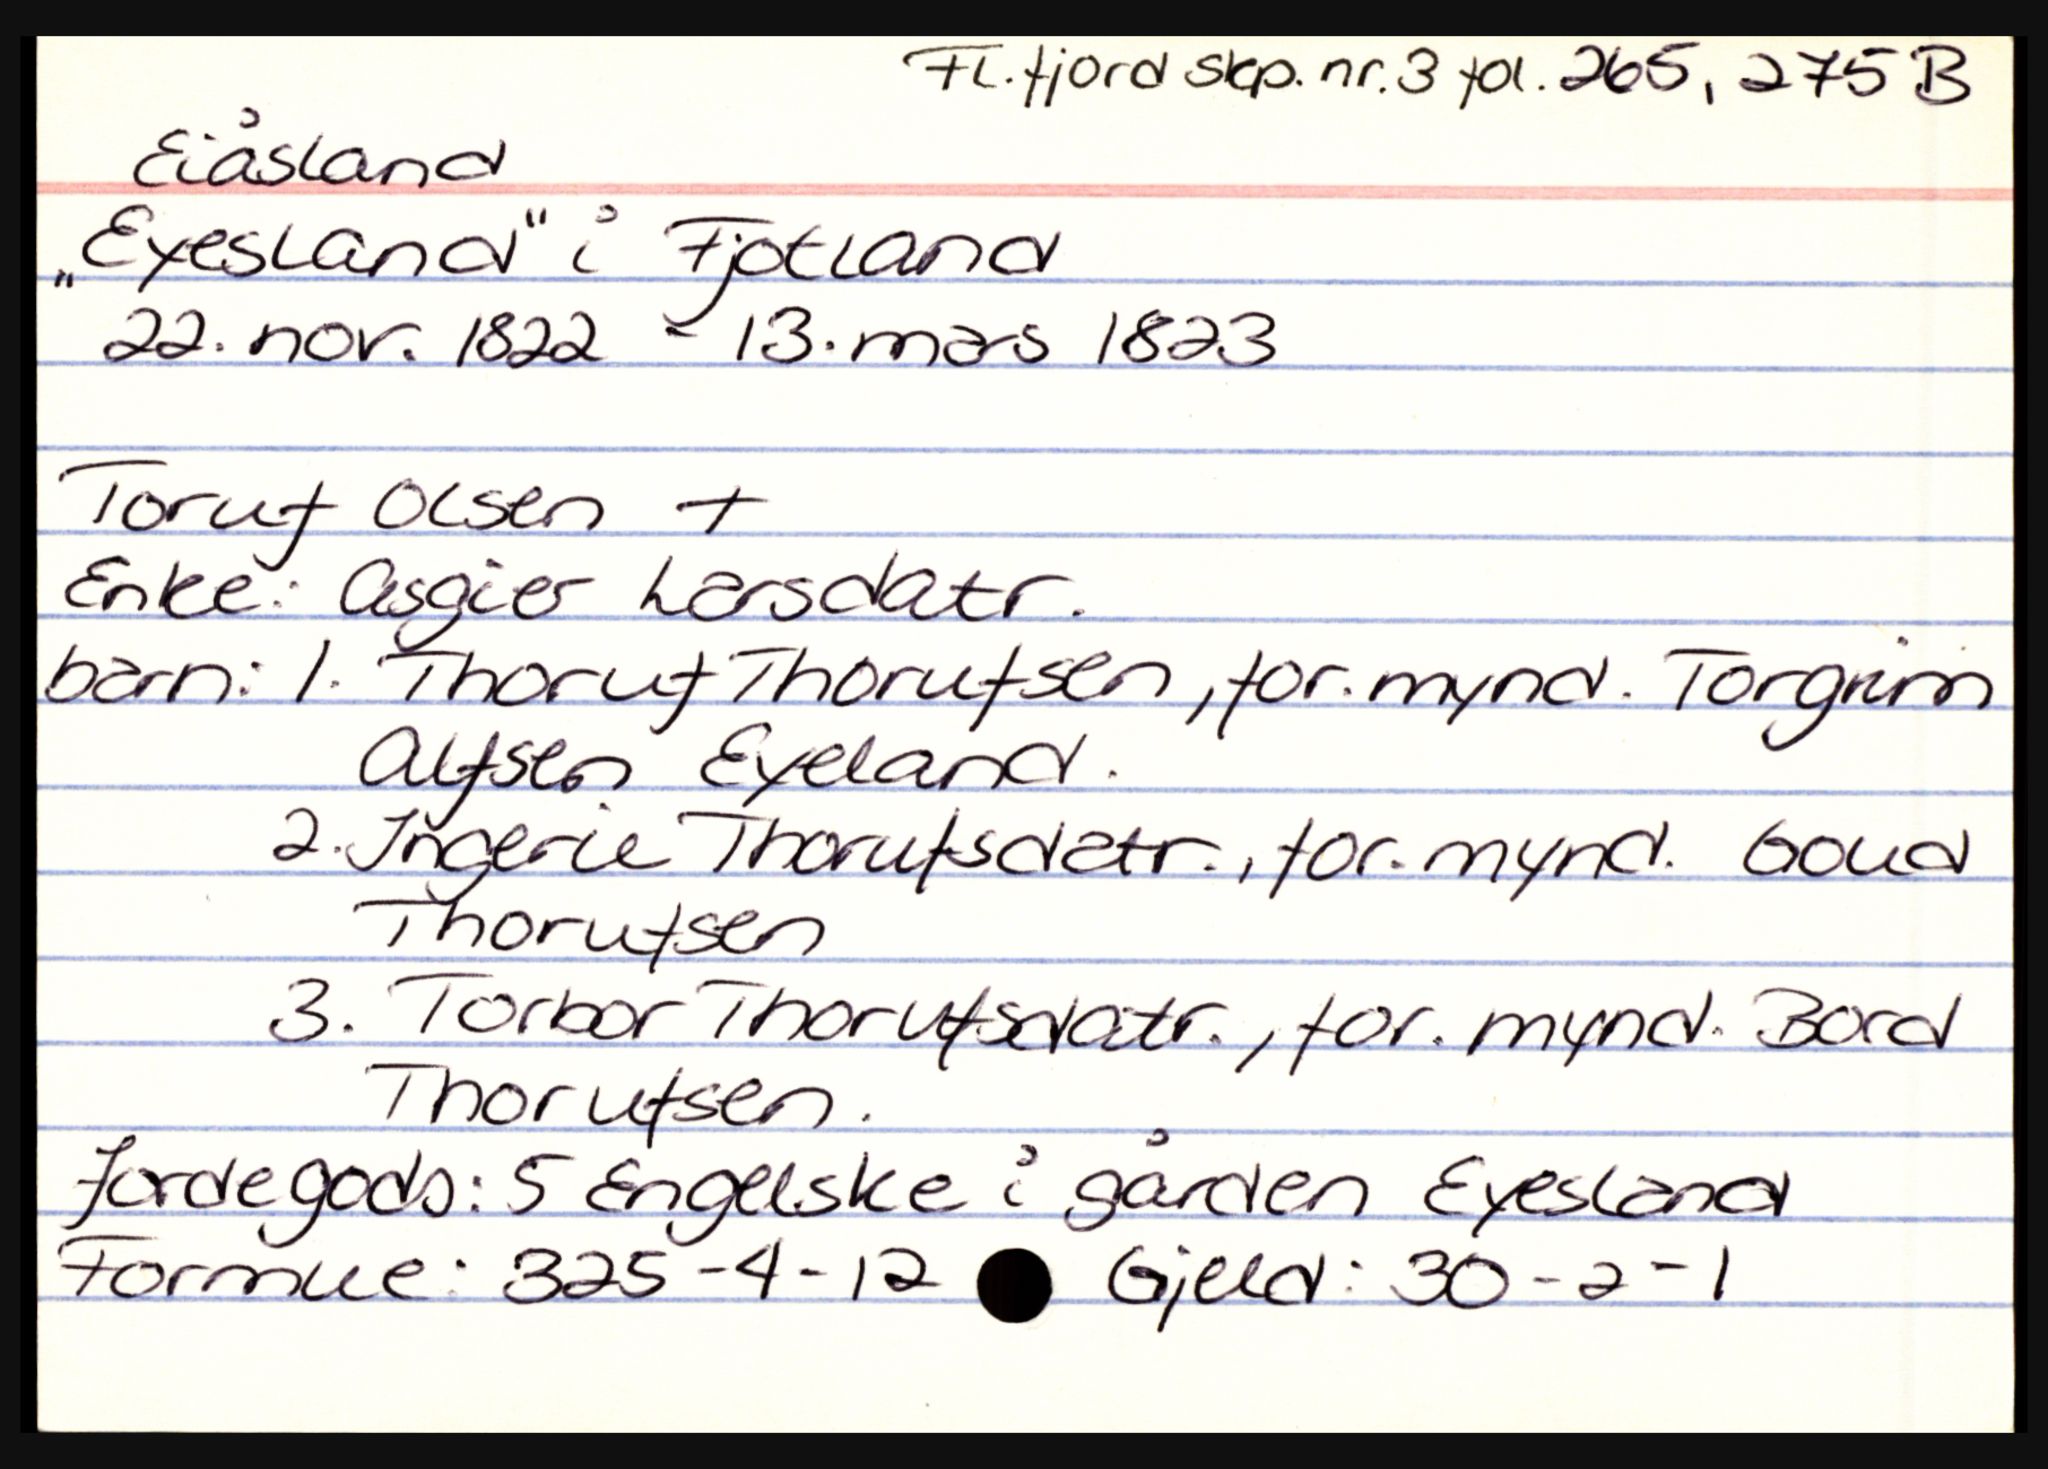 Fl.fjord skp. nr. 3 fol. 265, 275 B
Eiåsland
„Eyesland" i Fjotland
22. nov. 1822 - 13. mars 1823
Toruf Olsen +
Enke: Asgier Larsdatr.
barn: 1. Thoruf Thorufsen, for.mynd. Torgrim
Alfsen Eyeland.
2. Ingerie Thorufsdatr., for.mynd. Goud
Thorufsen
3. Torbor Thorufsdatr., for. mynd. Bord
Thorufsen.
Jordegods: 5 Engelske i gården Eyesland
Formue: 325-4-12 Gjeld: 30-2-1